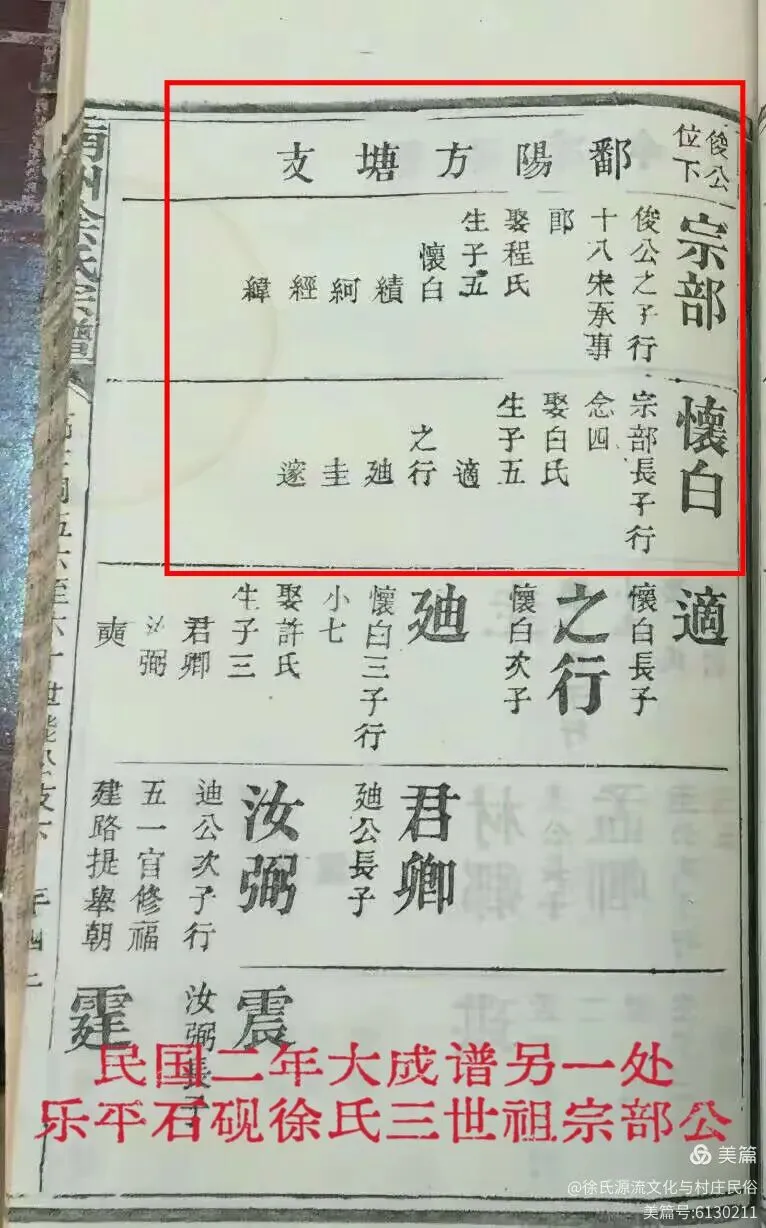 俊公
位下
鄱陽方塘支
宗部
俊公之子行
十八宋承事
郎
娶程氏
生子五
懷白
績
絅
經
緯
懷白
宗部長子行
念四
娶白氏
生子五
適
之行
廸
圭
邃
適
懷白長子
之行
懷白次子
廸
懷白三子行
小七
娶許氏
生子三
君卿
汝弼
奭
君卿
廸公長子
汝弼
迪公次子行
五一官修福
建路提舉朝
震
汝弼長子
霆
民国二年大成谱另一处
乐平石砚徐氏三世祖宗部公
美篇
@徐氏源流文化与村庄民俗
美篇号:6130211